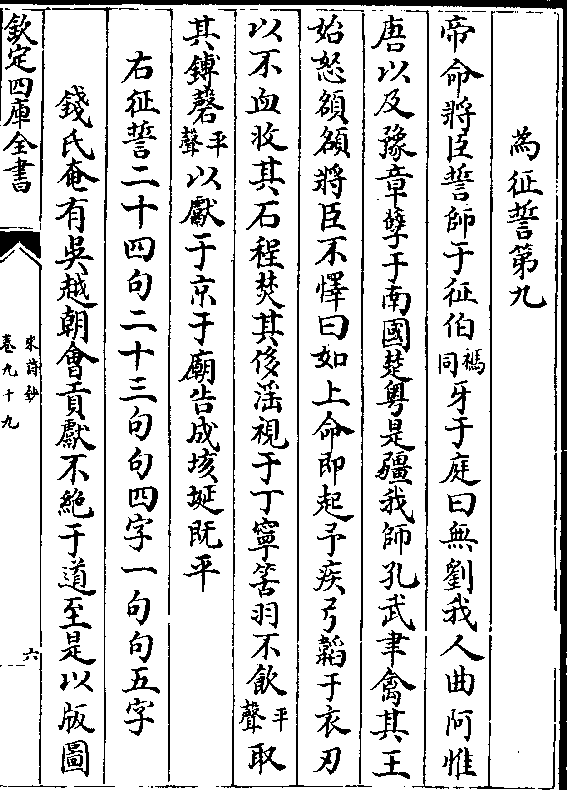 為征誓第九
帝命將臣誓師于征伯禡同牙于庭曰無劉我人曲阿惟
唐以及豫章孽于南國楚粤是疆我師孔武聿禽其王
始怒頟頟將臣不懌曰如上命即起予疾弓韜于衣刃
以不血收其石程焚其侈滛視于丁寧筈羽不飲平聲取
其鏄磬平聲以獻于京于廟告成垓埏既平
右征誓二十四句二十三句句四字一句句五字
錢氏奄有吳越朝會貢獻不絶于道至是以版圖
欽定四庫全書
宋詩鈔
卷九十九
六